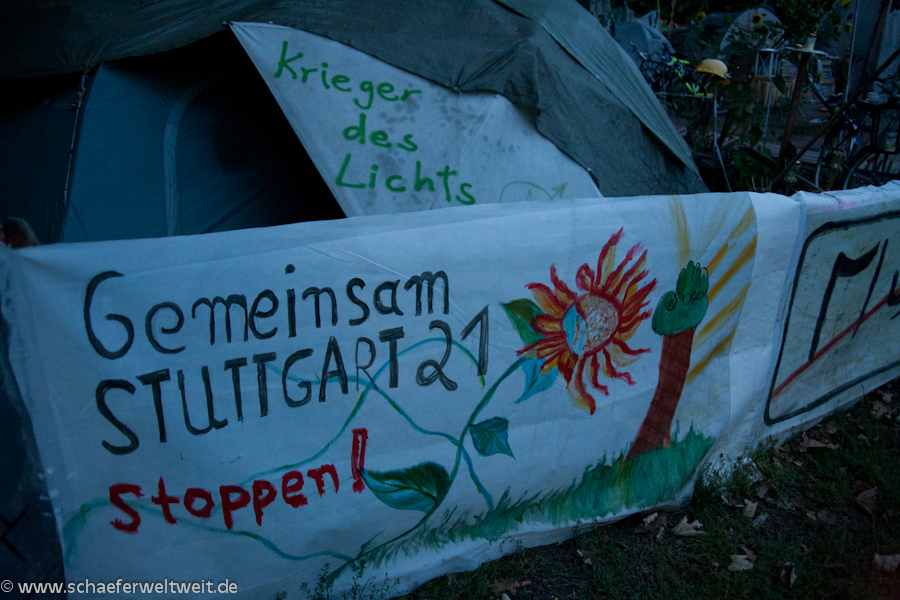 Krieger
des
Lichts
Gemeinsam
STUTTGART 21
stoppen!
© www.schaeferweltweit.de